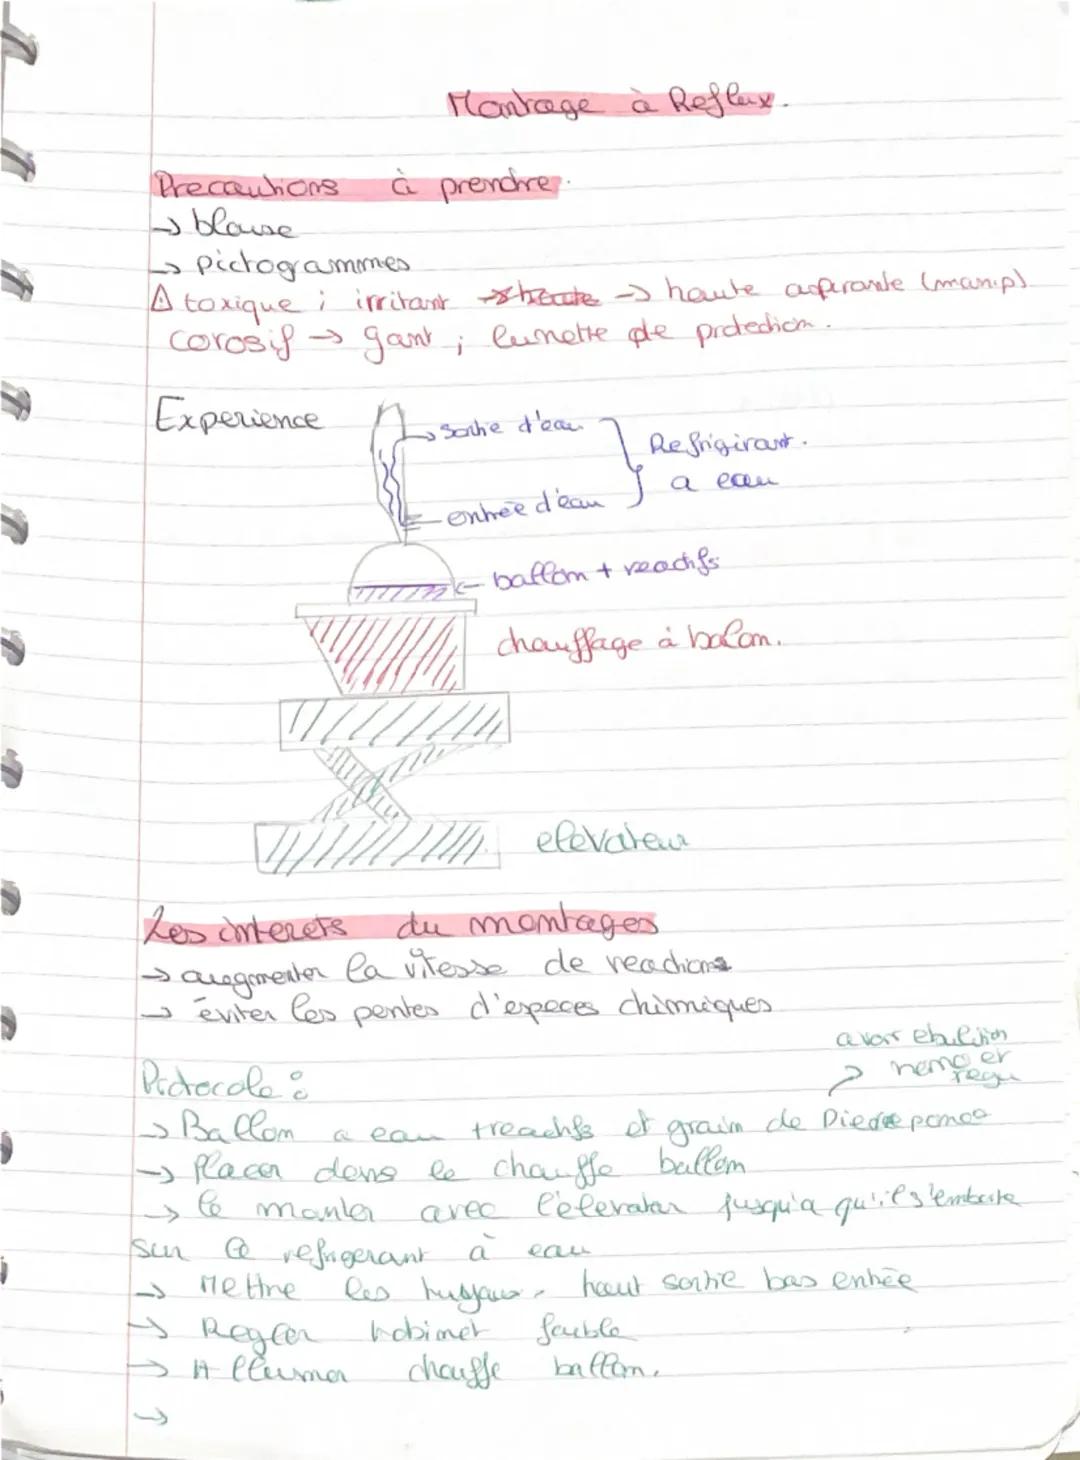 Montage à Reflux.
Precautions à prendre.
→ blouse
→ pictogrammes
⚠ toxique ; irritant → haute aspirante (manip)
corosif → gant ; lunette de protection.
Experience
→ sortie d'eau
Refrigirant.
a eau
← entrée d'eau
← ballom + reactifs
chauffage à balom.
elevateur
Les interets du montages
→ augmenter la vitesse de reactions
→ éviter les pertes d'especes chimiques
avoir ebulition
homo et
regu
Protocole :
→ Ballom a eau + reactifs et grain de Pierre ponce
→ Placer dans le chauffe ballom
→ le monter avec l'elevateur jusqu'a qu'il s'emboite
sur le refrigerant à eau
→ Mettre les tuyaux, haut sortie bas entrée
→ Regler robinet faible
→ Allumer chauffe ballom.
→